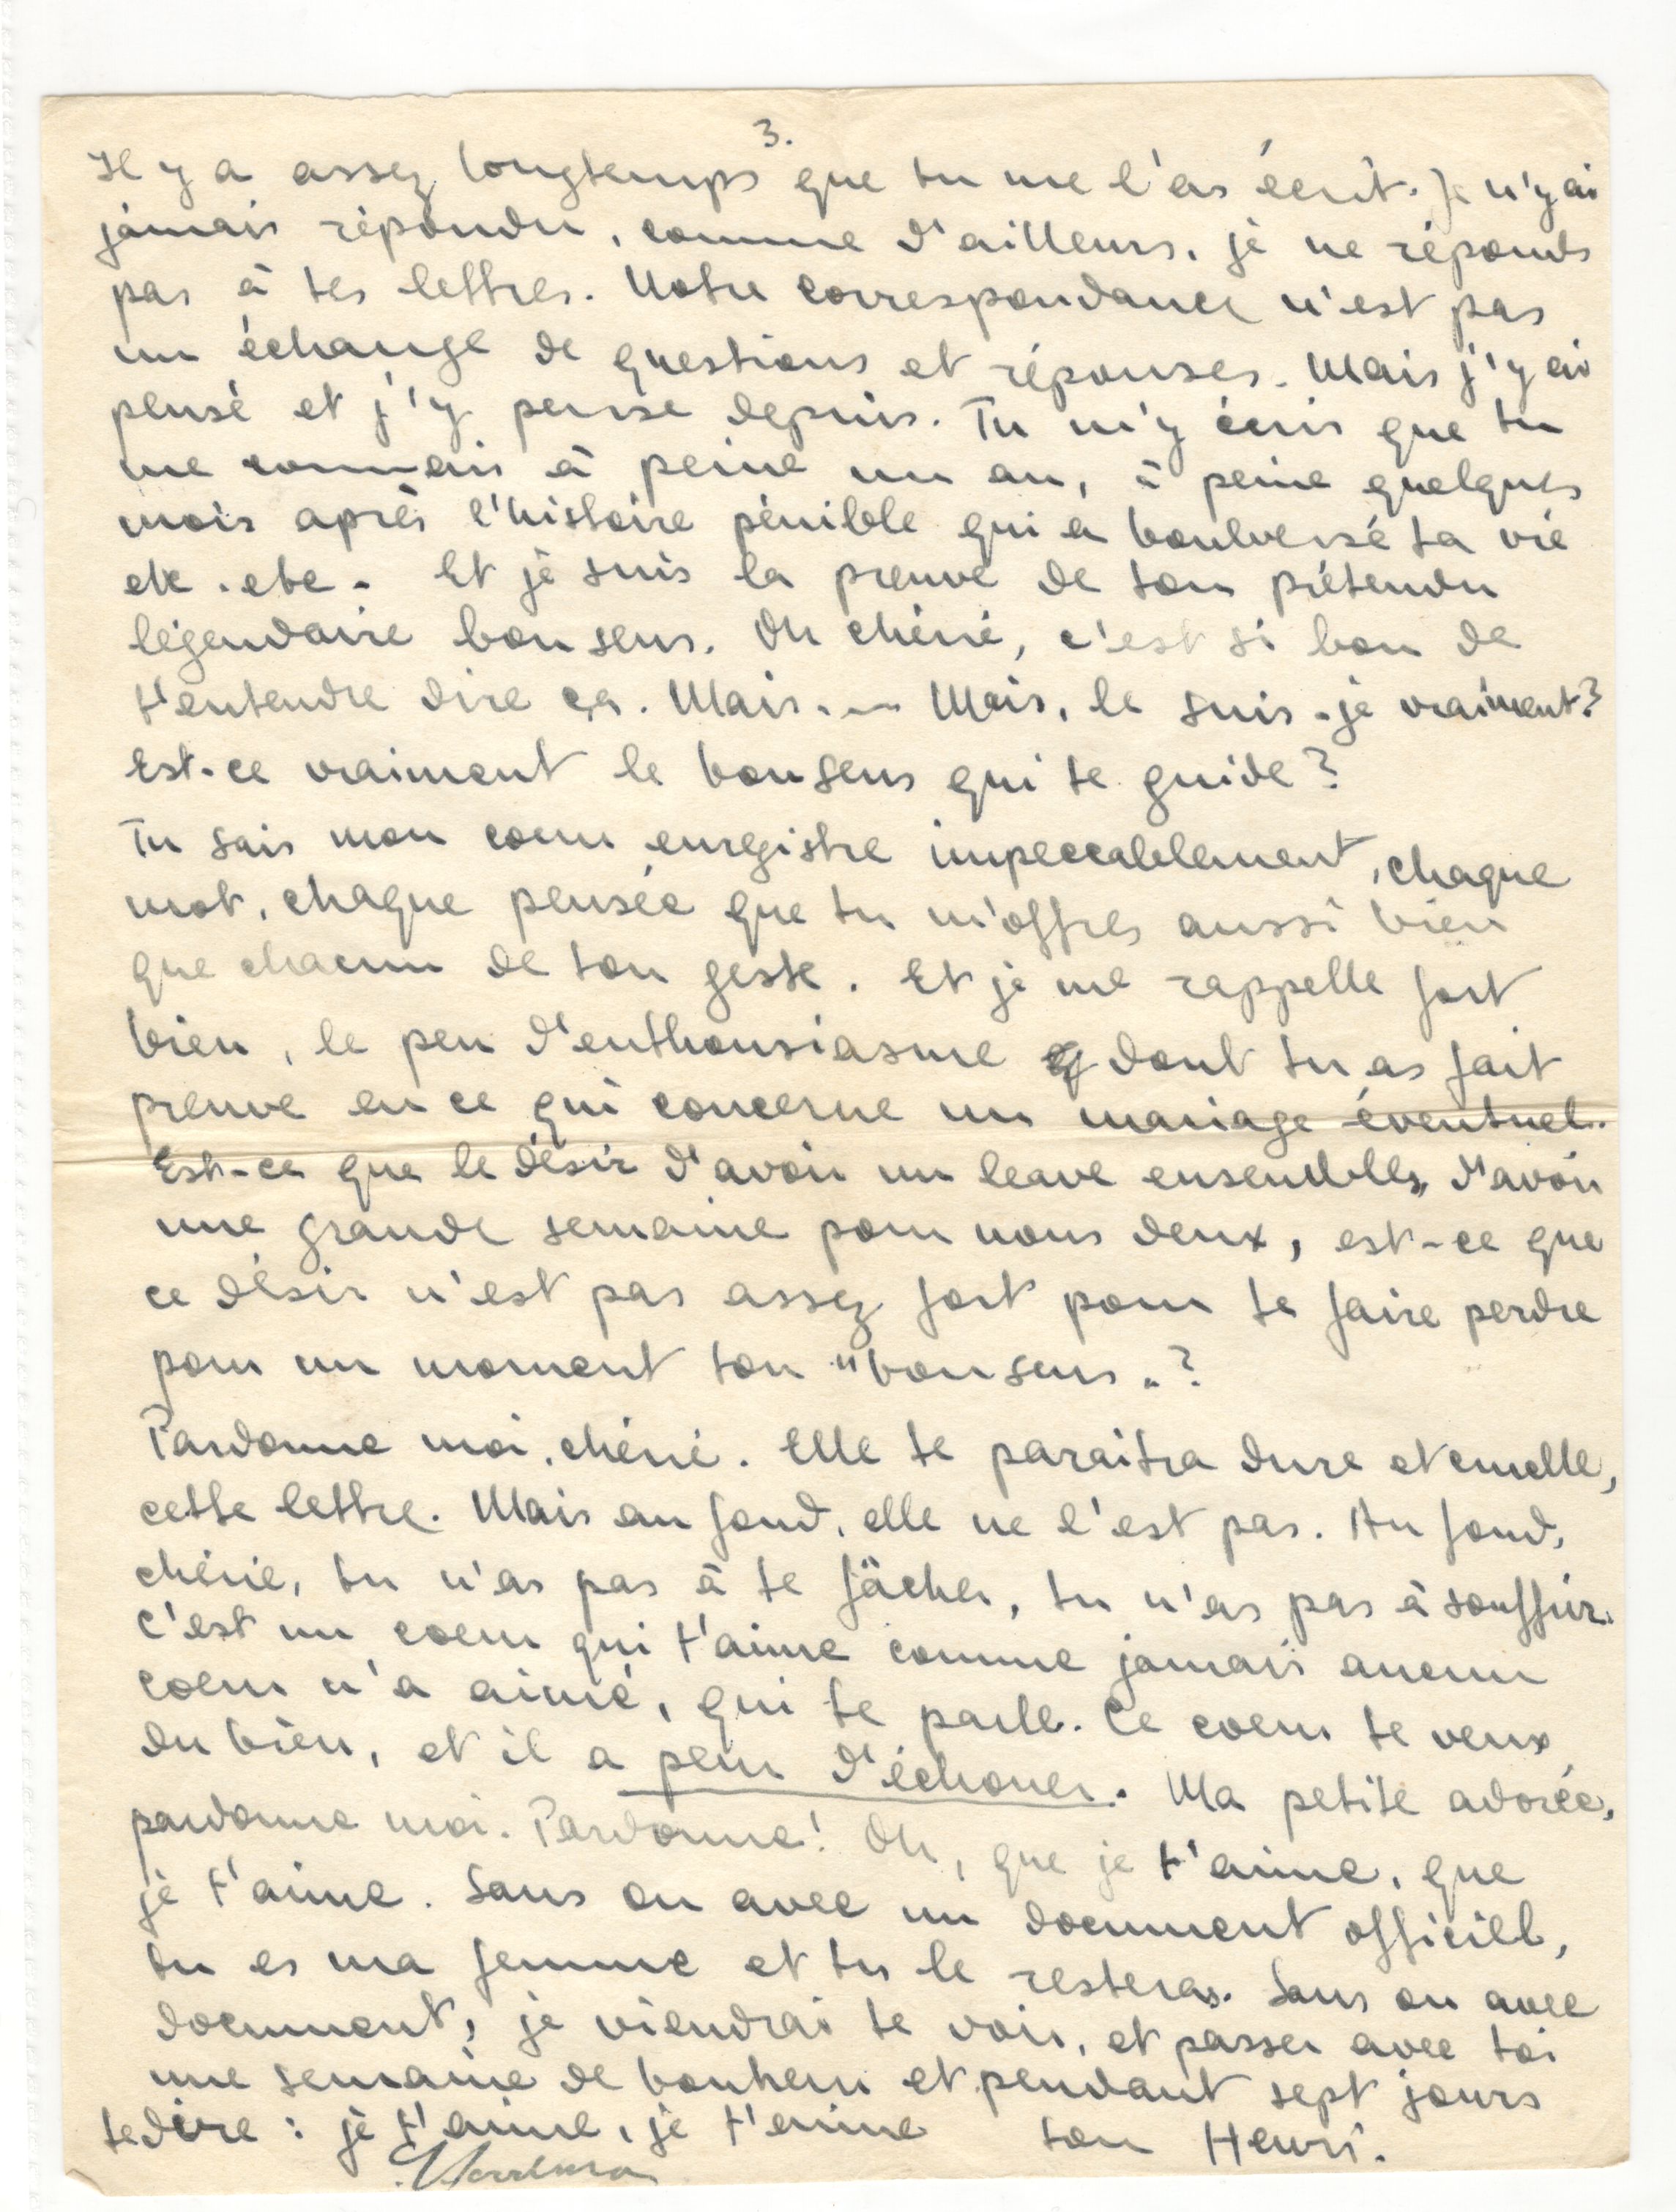 3.
Il y a assez longtemps que tu me l'as écrit. Je n'y ai
jamais répondu, comme d'ailleurs, je ne réponds
pas à tes lettres. Notre correspondance n'est pas
un échange de questions et réponses. Mais j'y ai
pensé et j'y pense depuis. Tu m'y écris que tu
me connais à peine un an, à peine quelques
mois après l'histoire pénible qui a boulversé ta vie
etc. etc. Et je suis la preuve de ton prétendu
légendaire bon sens. Oh chérie, c'est si bon de
t'entendre dire ça. Mais... Mais, le suis-je vraiment?
Est-ce vraiment le bon sens qui te guide?
Tu sais mon coeur enregistre impeccablement, chaque
mot, chaque pensée que tu m'offres aussi bien
que chacun de ton geste. Et je me rappelle fort
bien, le peu d'enthousiasme dont tu as fait
preuve en ce qui concerne un mariage éventuel.
Est-ce que le désir d'avoir un leave ensemble, d'avoir
une grande semaine pour nous deux, est-ce que
ce désir n'est pas assez fort pour te faire perdre
pour un moment ton "bon sens"?
Pardonne moi, chérie. Elle te paraitra dure et cruelle,
cette lettre. Mais au fond, elle ne l'est pas. Au fond,
chérie, tu n'as pas à te fâcher, tu n'as pas à souffrir.
C'est un coeur qui t'aime comme jamais aucun
coeur n'a aimé, qui te parle. Ce coeur te veux
du bien, et il a peur d'échouer. Ma petite adorée,
pardonne moi. Pardonne! Oh, que je t'aime, que
je t'aime. Sans ou avec un document officiel,
tu es ma femme et tu le resteras. Sans ou avec
document, je viendrai te voir, et passer avec toi
une semaine de bonheur et pendant sept jours
te dire : je t'aime, je t'aime ton Henri.